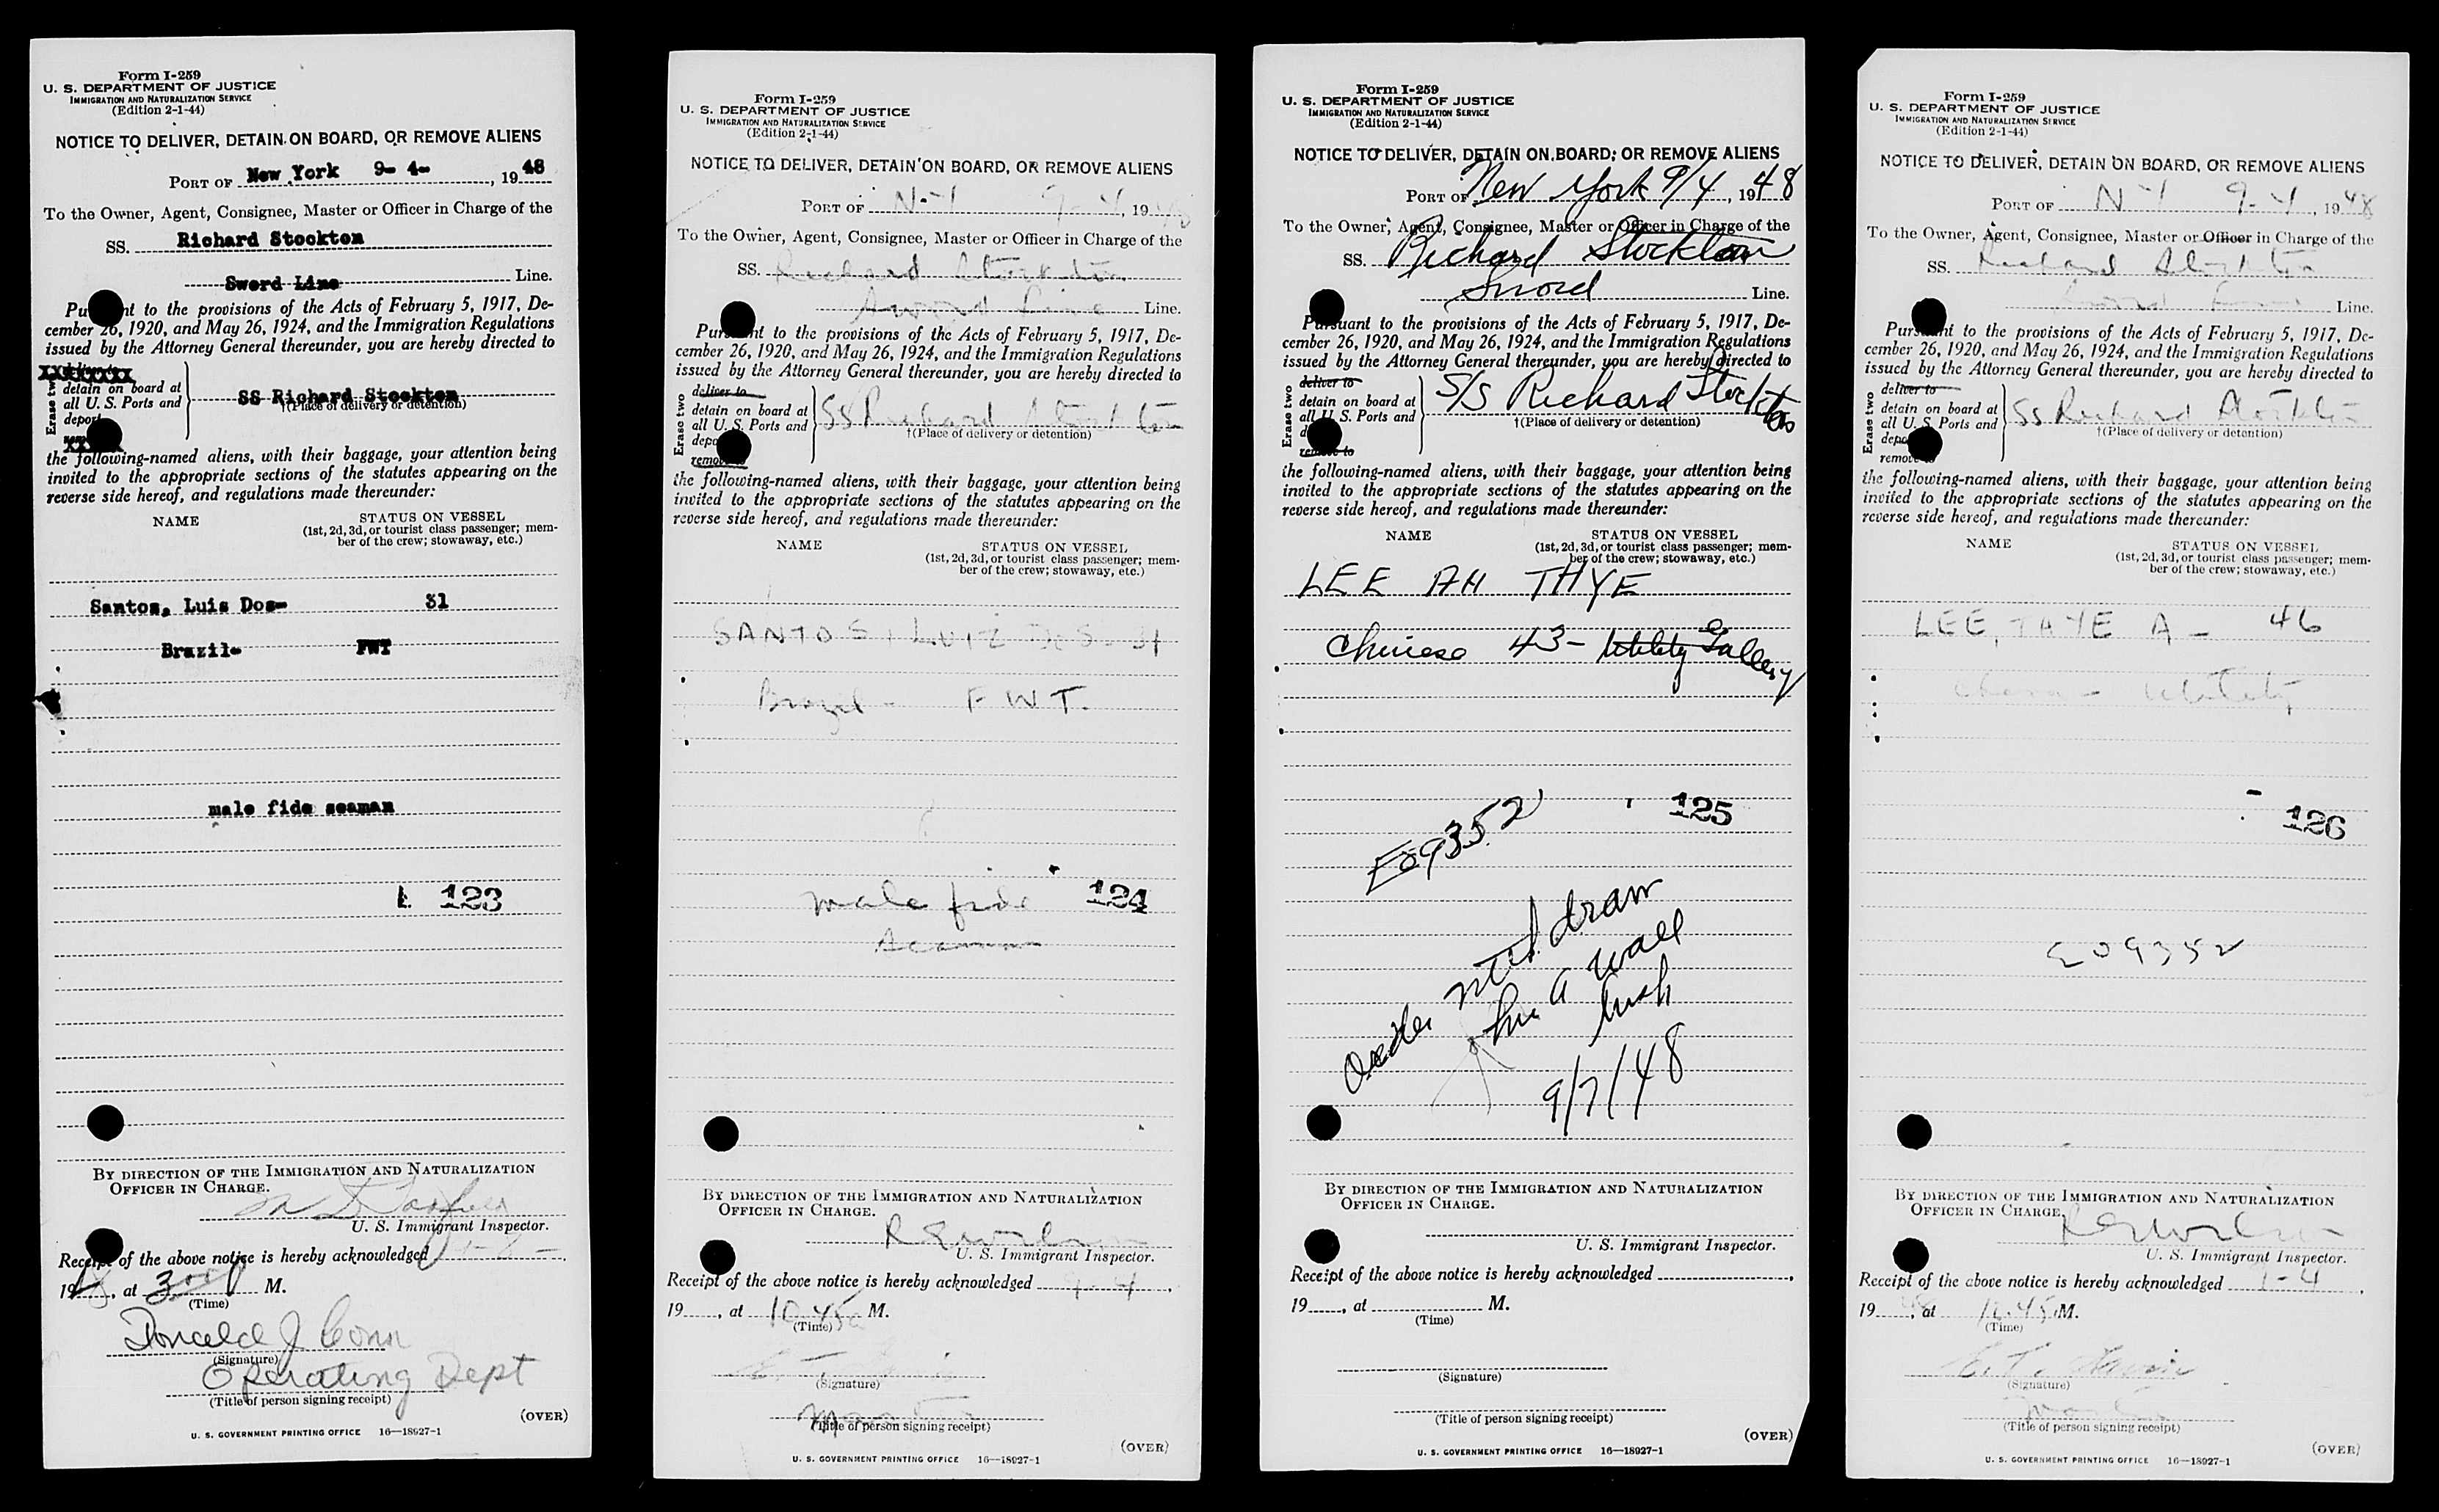 Form I-259
U. S. DEPARTMENT OF JUSTICE
IMMIGRATION AND NATURALIZATION SERVICE
(Edition 2-1-44)
NOTICE TO DELIVER, DETAIN ON BOARD, OR REMOVE ALIENS
PORT OF New York 9- 4- , 1948
To the Owner, Agent, Consignee, Master or Officer in Charge of the
SS. Richard Stockton
Sword Line Line.
Pursuant to the provisions of the Acts of February 5, 1917, De-
cember 26, 1920, and May 26, 1924, and the Immigration Regulations
issued by the Attorney General thereunder, you are hereby directed to
Erase two
detain on board at
all U. S. Ports and
deport
SS Richard Stockton
†(Place of delivery or detention)
the following-named aliens, with their baggage, your attention being
invited to the appropriate sections of the statutes appearing on the
reverse side hereof, and regulations made thereunder:
NAME STATUS ON VESSEL
(1st, 2d, 3d, or tourist class passenger; mem-
ber of the crew; stowaway, etc.)
Santos, Luis Dos- 31
Brazil- FWT
male fide seaman
123
BY DIRECTION OF THE IMMIGRATION AND NATURALIZATION
OFFICER IN CHARGE.
U. S. Immigrant Inspector.
Receipt of the above notice is hereby acknowledged
1948, at 3 00 P M.
(Time)
Donald J Conn
(Signature)
Operating Dept
(Title of person signing receipt)
(OVER)
U. S. GOVERNMENT PRINTING OFFICE 16—18927-1
Form I-259
U. S. DEPARTMENT OF JUSTICE
IMMIGRATION AND NATURALIZATION SERVICE
(Edition 2-1-44)
NOTICE TO DELIVER, DETAIN ON BOARD, OR REMOVE ALIENS
PORT OF N-Y 9-4, 1948
To the Owner, Agent, Consignee, Master or Officer in Charge of the
SS. Richard Stockton
Sword Line Line.
Pursuant to the provisions of the Acts of February 5, 1917, De-
cember 26, 1920, and May 26, 1924, and the Immigration Regulations
issued by the Attorney General thereunder, you are hereby directed to
Erase two
deliver to
detain on board at
all U. S. Ports and
deport
remove to
SS Richard Stockton
†(Place of delivery or detention)
the following-named aliens, with their baggage, your attention being
invited to the appropriate sections of the statutes appearing on the
reverse side hereof, and regulations made thereunder:
NAME STATUS ON VESSEL
(1st, 2d, 3d, or tourist class passenger; mem-
ber of the crew; stowaway, etc.)
SANTOS, LUIZ DOS- 31
Brazil - F W T.
male fide
seaman
124
BY DIRECTION OF THE IMMIGRATION AND NATURALIZATION
OFFICER IN CHARGE.
U. S. Immigrant Inspector.
Receipt of the above notice is hereby acknowledged 9-4,
19 , at 10.45a M.
(Time)
(Signature)
Master
(Title of person signing receipt)
(OVER)
U. S. GOVERNMENT PRINTING OFFICE 16—18927-1
Form I-259
U. S. DEPARTMENT OF JUSTICE
IMMIGRATION AND NATURALIZATION SERVICE
(Edition 2-1-44)
NOTICE TO DELIVER, DETAIN ON BOARD, OR REMOVE ALIENS
PORT OF New York 9/4, 1948
To the Owner, Agent, Consignee, Master or Officer in Charge of the
SS. Richard Stockton
Sword Line.
Pursuant to the provisions of the Acts of February 5, 1917, De-
cember 26, 1920, and May 26, 1924, and the Immigration Regulations
issued by the Attorney General thereunder, you are hereby directed to
Erase two
deliver to
detain on board at
all U. S. Ports and
remove to
S/S Richard Stockton
†(Place of delivery or detention)
the following-named aliens, with their baggage, your attention being
invited to the appropriate sections of the statutes appearing on the
reverse side hereof, and regulations made thereunder:
NAME STATUS ON VESSEL
(1st, 2d, 3d, or tourist class passenger; mem-
ber of the crew; stowaway, etc.)
LEE AH THYE
Chinese 43- Utility Galley
125
E09352
9/7/48
BY DIRECTION OF THE IMMIGRATION AND NATURALIZATION
OFFICER IN CHARGE.
U. S. Immigrant Inspector.
Receipt of the above notice is hereby acknowledged ,
19 , at M.
(Time)
(Signature)
(Title of person signing receipt)
(OVER)
U. S. GOVERNMENT PRINTING OFFICE 16—18927-1
Form I-259
U. S. DEPARTMENT OF JUSTICE
IMMIGRATION AND NATURALIZATION SERVICE
(Edition 2-1-44)
NOTICE TO DELIVER, DETAIN ON BOARD, OR REMOVE ALIENS
PORT OF N-Y 9-4, 1948
To the Owner, Agent, Consignee, Master or Officer in Charge of the
SS. Richard Stockton
Sword Line Line.
Pursuant to the provisions of the Acts of February 5, 1917, De-
cember 26, 1920, and May 26, 1924, and the Immigration Regulations
issued by the Attorney General thereunder, you are hereby directed to
Erase two
deliver to
detain on board at
all U. S. Ports and
deport
remove to
SS Richard Stockton
†(Place of delivery or detention)
the following-named aliens, with their baggage, your attention being
invited to the appropriate sections of the statutes appearing on the
reverse side hereof, and regulations made thereunder:
NAME STATUS ON VESSEL
(1st, 2d, 3d, or tourist class passenger; mem-
ber of the crew; stowaway, etc.)
LEE, THYE A - 46
China - Utility
126
E09352
BY DIRECTION OF THE IMMIGRATION AND NATURALIZATION
OFFICER IN CHARGE.
U. S. Immigrant Inspector.
Receipt of the above notice is hereby acknowledged 9-4,
1948, at M.
(Time)
(Signature)
Master
(Title of person signing receipt)
(OVER)
U. S. GOVERNMENT PRINTING OFFICE 16—18927-1